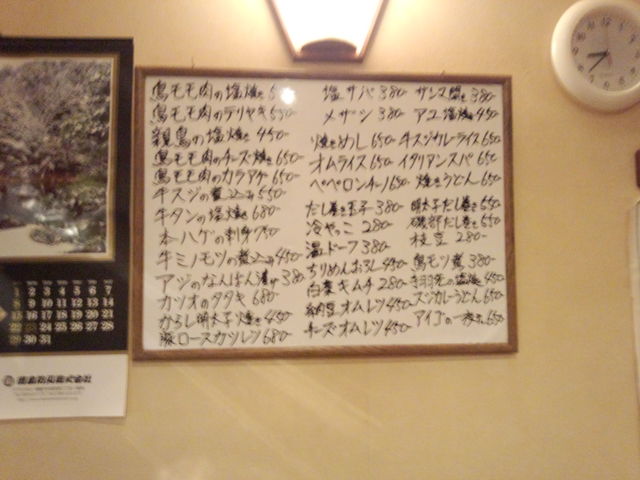 鳥モモ肉の塩焼き
鳥モモ肉のテリヤキ 550-
親鳥の塩焼き 450-
鳥モモ肉のチーズ焼き 650-
鳥モモ肉のカラアゲ 650-
牛スジの煮込み 550-
牛タンの塩焼き 680-
本ハゲの刺身 750
牛ミノモツの煮込み 450-
アジのなんばん漬け 380
カツオのタタキ 680-
からし明太子焼き 450-
豚ロースカツレツ 680-
塩サバ 380-
メザシ 380-
焼きめし 650-
オムライス 650-
ペペロンチーノ 650-
だし巻き玉子 380-
冷やっこ 280-
温ドーフ 380-
ちりめんおろし 450-
白菜キムチ 280-
納豆オムレツ 450-
チーズオムレツ 450-
サンマ開き 380-
アユ塩焼き 450
牛スジカレーライス 650
イタリアンスパ 650-
焼きうどん 650
明太子だし巻き 550
磯部だし巻き 550
枝豆 280-
鳥モツ煮 380-
手羽先の塩焼 450
スジカレーうどん 650
アイゴの一夜干 650
1 2 3 4 5 6 7
8 9 10 11 12 13 14
15 16 17 18 19 20 21
22 23 24 25 26 27 28
29 30 31